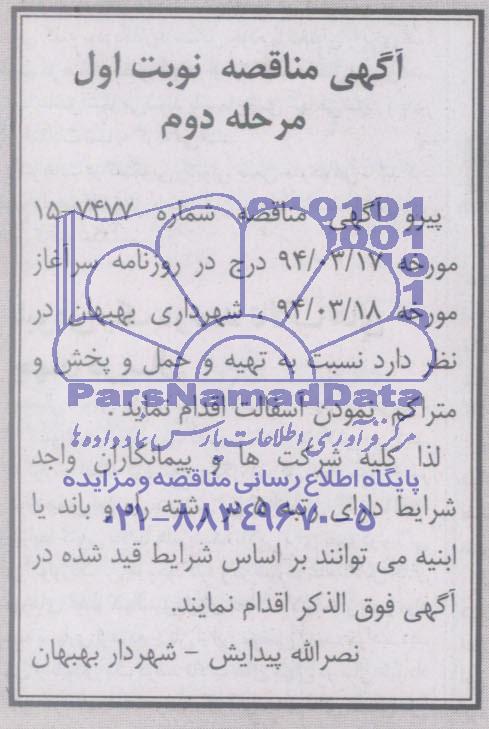 آگهی مناقصه نوبت اول
مرحله دوم
پیرو آگهی مناقصه شماره ۱۵-۷۴۷۷
مورخه ۹۴/۰۳/۱۷ درج در روزنامه سرآغاز
مورخه ۹۴/۰۳/۱۸ ، شهرداری بهبهان در
نظر دارد نسبت به تهیه و حمل و پخش و
متراکم نمودن آسفالت اقدام نماید .
لذا کلیه شرکت ها و پیمانکاران واجد
شرایط دارای رتبه ۵ در رشته راه و باند یا
ابنیه می توانند بر اساس شرایط قید شده در
آگهی فوق الذکر اقدام نمایند.
نصرالله پیدایش – شهردار بهبهان
ParsNamadData
مرکز فرآوری اطلاعات پارس نماد داده ها
پایگاه اطلاع رسانی مناقصه و مزایده
۰۲۱-۸۸۳۴۹۶۷۰-۵